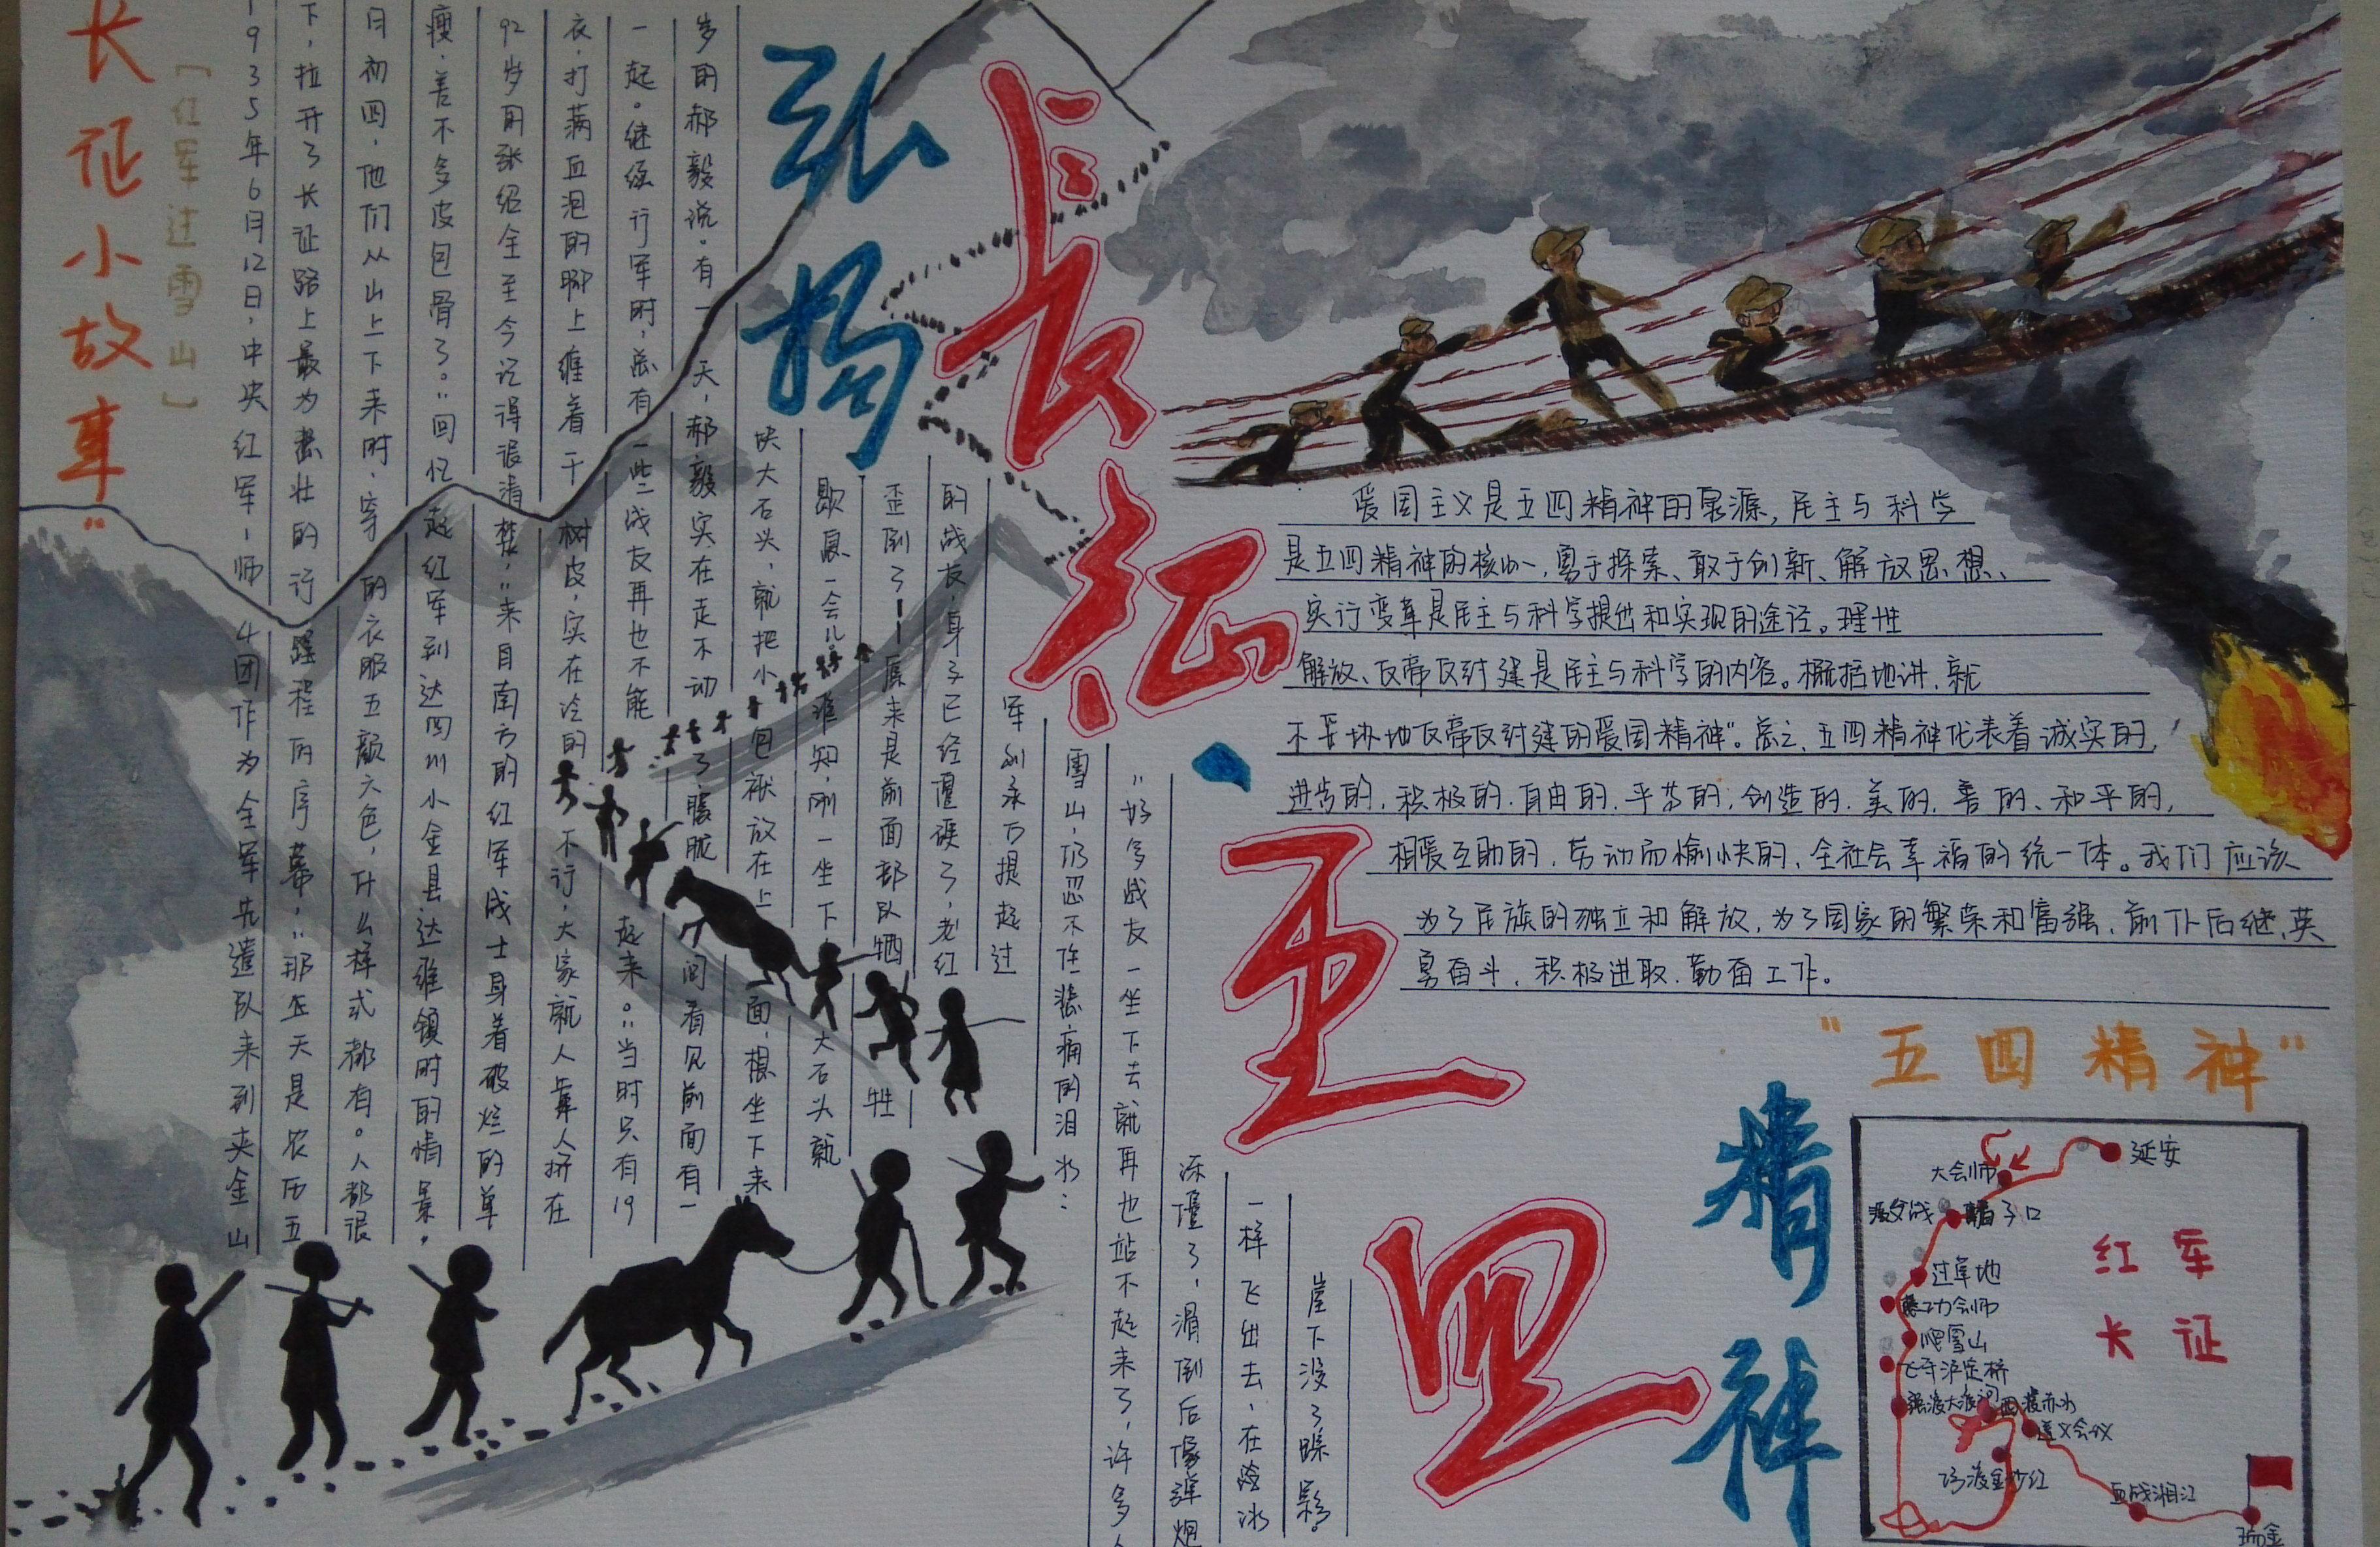 长征小故事"
[红军过雪山]
1935年6月12日，中央红军1师4团作为全军先遣队来到夹金山
下，拉开了长证路上最为悲壮的行程的序幕，"那天是农历五
月初四，他们从山上下来时，穿的衣服五颜六色，什么样式都有。人都很
瘦，差不多皮包骨了。"回忆起红军到达四川小金县达维镇时的情景，
92岁的张绍全至今记得很清楚，"来自南方的红军战士身着破烂的单
衣，打满血泡的脚上缠着干树皮，实在冷的不行，大家就人靠人挤在
一起。继续行军时，总有一些战友再也不能起来。"当时只有19
岁的郝毅说。有一天，郝毅实在走不动了，朦胧间看见前面有一
块大石头，就把小包袱放在上面，想坐下来
歇息一会儿。谁知，刚一坐下大石头就
歪倒了——原来是前面部队牺牲
的战友，身子已经僵硬了，老红
军刘承万提起过
雪山，仍忍不住悲痛的泪水：
"好多战友一坐下去就再也站不起来了，许多人
冻僵了，滑倒后像弹炮
一样飞出去，在冰
崖下没了踪影。
弘扬
长征·五四
精神
爱国主义是五四精神的泉源，民主与科学
是五四精神的核心，勇于探索、敢于创新、解放思想、
实行变革是民主与科学提出和实现的途径。理性
解放、反帝反封建是民主与科学的内容。概括地讲，就
不妥协地反帝反封建的爱国精神"。总之，五四精神代表着诚实的，
进步的，积极的，自由的，平等的，创造的，美的，善的、和平的，
相爱互助的，劳动而愉快的，全社会幸福的统一体。我们应该
为了民族的独立和解放，为了国家的繁荣和富强，前仆后继，英
勇奋斗，积极进取，勤奋工作。
"五四精神"
延安
大会师
腊子口
过草地
懋功会师
爬雪山
飞夺泸定桥
强渡大渡河
四渡赤水
遵义会议
巧渡金沙江
血战湘江
瑞金
红军
长征